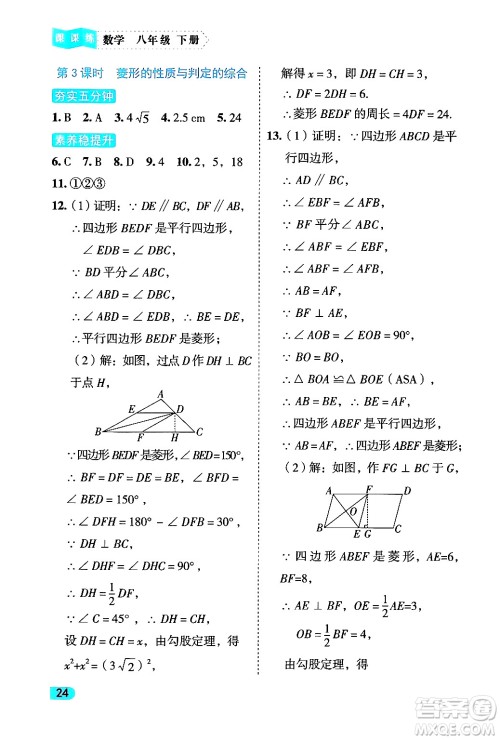 课课练 数学 八年级 下册
第3课时 菱形的性质与判定的综合
夯实五分钟
1. B 2. A 3. 4√5 4. 2.5 cm 5. 24
素养稳提升
6. C 7. B 8. D 9. A 10. 2，5，18
11. ①②③
12. （1）证明：∵ DE∥BC，DF∥AB，
∴四边形 BEDF 是平行四边形，
∠EDB=∠DBC，
∵ BD 平分∠ABC，
∴∠ABD=∠DBC，
∴∠ABD=∠EDB，
∴ DE=BE，
∴平行四边形 BEDF 是菱形；
（2）解：如图，过点 D 作 DH⊥BC
于点 H，
A
E D
B F H C
∵四边形 BEDF 是菱形，∠BED=150°，
∴ BF=DF=BE=DE，∠BFD=
∠BED=150°，
∴∠DFH=180°-∠DFB=30°，
∵ DH⊥BC，
∴∠DHF=∠DHC=90°，
∴ DH=1/2 DF，
∵∠C=45°，∴ DH=CH，
设 DH=CH=x，由勾股定理，得
x²+x²=（3√2）²，
解得 x=3，即 DH=CH=3，
∴ DF=2DH=6，
∴菱形 BEDF 的周长=4DF=24.
13. （1）证明：∵四边形 ABCD 是平
行四边形，
∴ AD∥BC，
∴∠EBF=∠AFB，
∵ BF 平分∠ABC，
∴∠ABF=∠CBF，
∴∠ABF=∠AFB，
∴ AB=AF，
∵ BF⊥AE，
∴∠AOB=∠EOB=90°，
∵ BO=BO，
∴△BOA≌△BOE（ASA），
∴ AB=BE，
∴ BE=AF，BE∥AF，
∴四边形 ABEF 是平行四边形，
∵ AB=AF，
∴平行四边形 ABEF 是菱形；
（2）解：如图，作 FG⊥BC 于 G，
A F D
O
B E G C
∵四边形 ABEF 是菱形，AE=6，
BF=8，
∴ AE⊥BF，OE=1/2 AE=3，
OB=1/2 BF=4，
由勾股定理，得
24